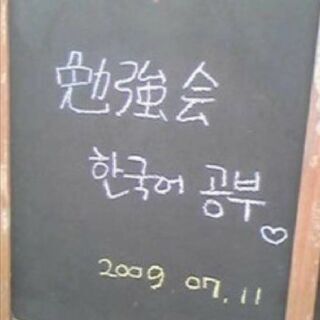 勉強会
한국어 공부♡
2009 07.11